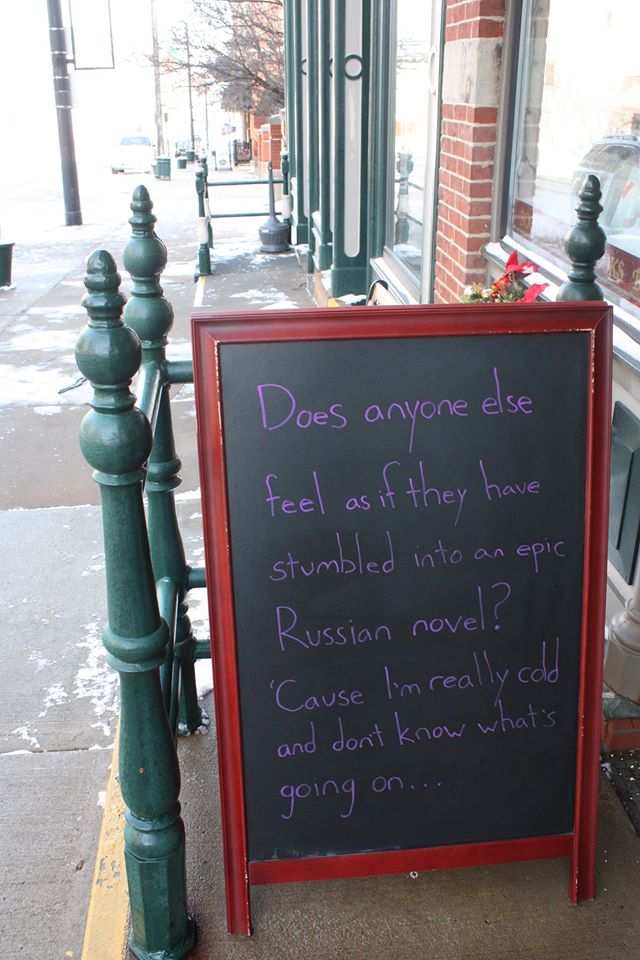 Does anyone else
feel as if they have
stumbled into an epic
Russian novel?
'Cause I'm really cold
and don't know what's
going on...